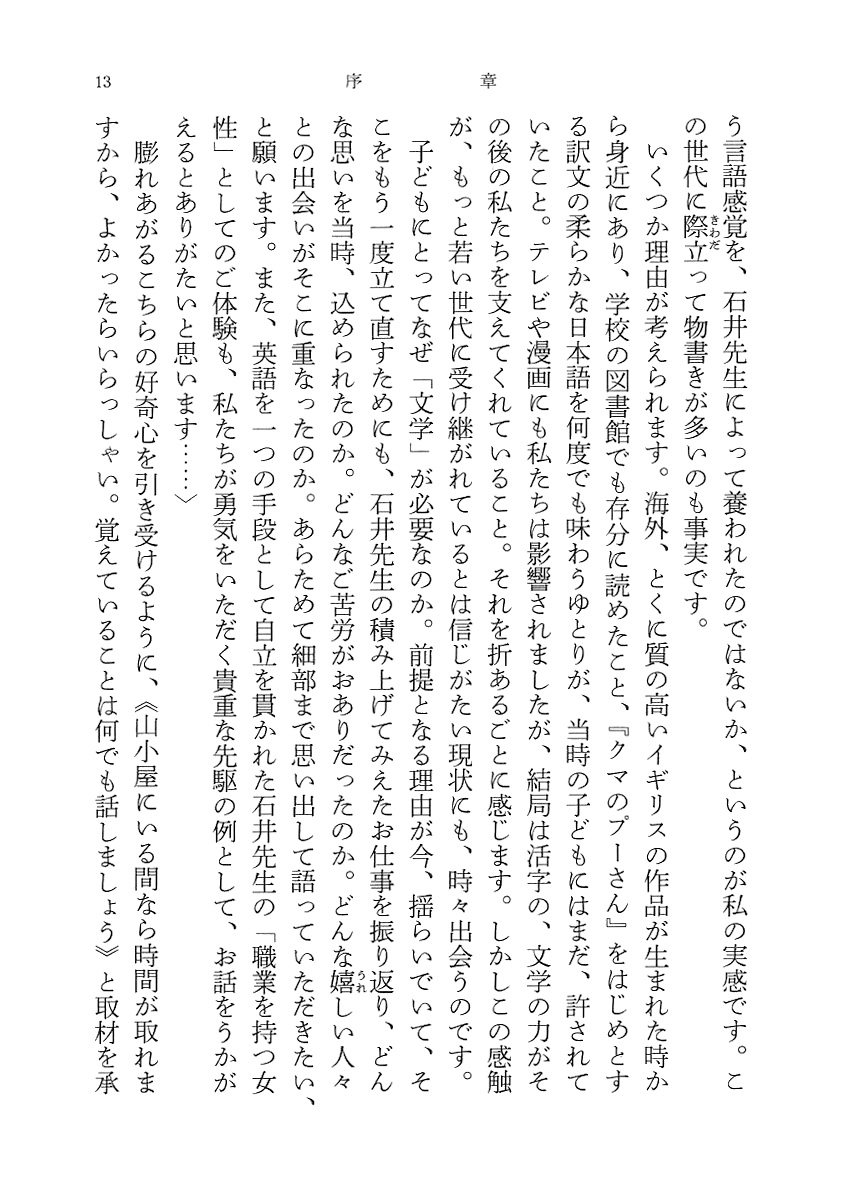 13
序章
う言語感覚を、石井先生によって養われたのではないか、というのが私の実感です。こ
の世代に際立って物書きが多いのも事実です。
きわだ
いくつか理由が考えられます。海外、とくに質の高いイギリスの作品が生まれた時か
ら身近にあり、学校の図書館でも存分に読めたこと、『クマのプーさん』をはじめとす
る訳文の柔らかな日本語を何度でも味わうゆとりが、当時の子どもにはまだ、許されて
いたこと。テレビや漫画にも私たちは影響されましたが、結局は活字の、文学の力がそ
の後の私たちを支えてくれていること。それを折あるごとに感じます。しかしこの感触
が、もっと若い世代に受け継がれているとは信じがたい現状にも、時々出会うのです。
子どもにとってなぜ「文学」が必要なのか。前提となる理由が今、揺らいでいて、そ
こをもう一度立て直すためにも、石井先生の積み上げてみえたお仕事を振り返り、どん
な思いを当時、込められたのか。どんなご苦労がおありだったのか。どんな嬉しい人々
うれ
との出会いがそこに重なったのか。あらためて細部まで思い出して語っていただきたい、
と願います。また、英語を一つの手段として自立を貫かれた石井先生の「職業を持つ女
性」としてのご体験も、私たちが勇気をいただく貴重な先駆の例として、お話をうかが
えるとありがたいと思います……〉
膨れあがるこちらの好奇心を引き受けるように、《山小屋にいる間なら時間が取れま
すから、よかったらいらっしゃい。覚えていることは何でも話しましょう》と取材を承